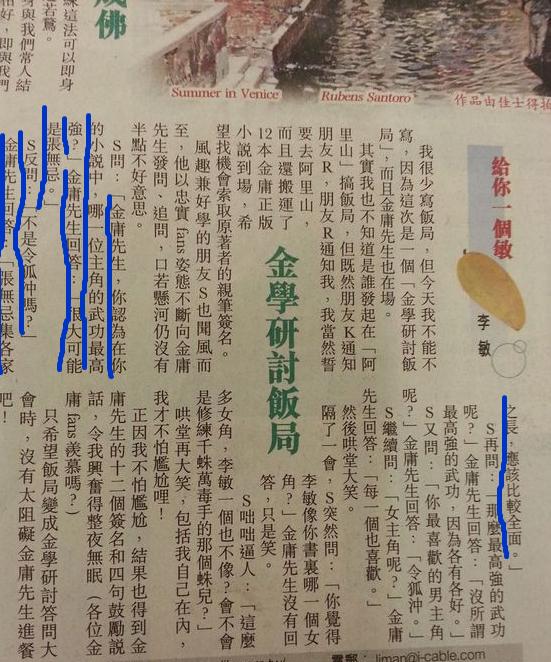 成佛
練這法可以即身
若驚。
身與我們常人結
相好,即與我們
Summer in Venice
Rubens Santoro
作品由佳士得
給你一個敏
李敏
金學研討飯局
我很少寫飯局,但今天我不能不
寫,因為這次是一個「金學研討飯
局」,而且金庸先生也在場。
其實我也不知道是誰發起在「阿
里山」搞飯局,但既然朋友K通知
朋友R,朋友R通知我,我當然誓
要去阿里山,
而且還搬運了
12本金庸正版
小說到場,希
望找機會索取原著者的親筆簽名。
風趣兼好學的朋友S也聞風而
至,他以忠實fans姿態不斷向金庸
先生發問、追問,口若懸河仍沒有
半點不好意思。
S問:「金庸先生,你認為在你
的小說中,哪一位主角的武功最高
強?」金庸先生回答:「很大可能
是張無忌。」
S反問:「不是令狐沖嗎?」
金庸先生回答:「張無忌集各家
之長,應該比較全面。」
S再問:「那麼最高強的武功
呢?」金庸先生回答:「沒所謂
最高強的武功,因為各有各好。」
S又問:「你最喜歡的男主角
呢?」金庸先生回答:「令狐沖。」
S繼續問:「女主角呢?」金庸
先生回答:「每一個也喜歡。」
然後哄堂大笑。
隔了一會,S突然問:「你覺得
李敏像你書裏哪一個女
角?」金庸先生沒有回
答,只是笑。
S咄咄逼人:「這麼
多女角,李敏一個也不像?會不會
是修練千蛛萬毒手的那個蛛兒?」
哄堂再大笑,包括我自己在內,
我才不怕尷尬哩!
正因我不怕尷尬,結果也得到金
庸先生的十二個簽名和四句鼓勵說
話,令我興奮得整夜無眠(各位金
庸fans羨慕嗎?)
只希望飯局變成金學研討答問大
會時,沒有太阻礙金庸先生進餐
吧!
電郵: liman@i-cable.com